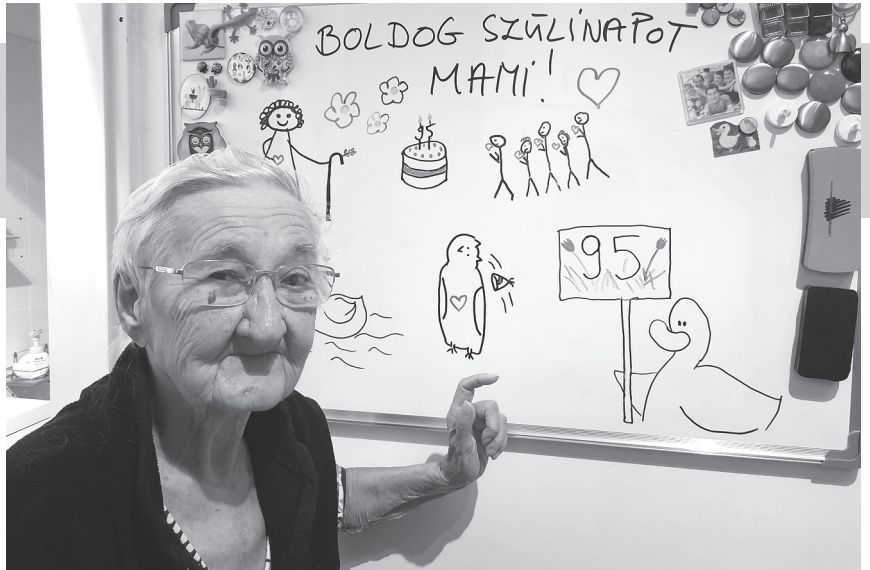 BOLDOG SZÜLINAPOT
MAMI!
95
95